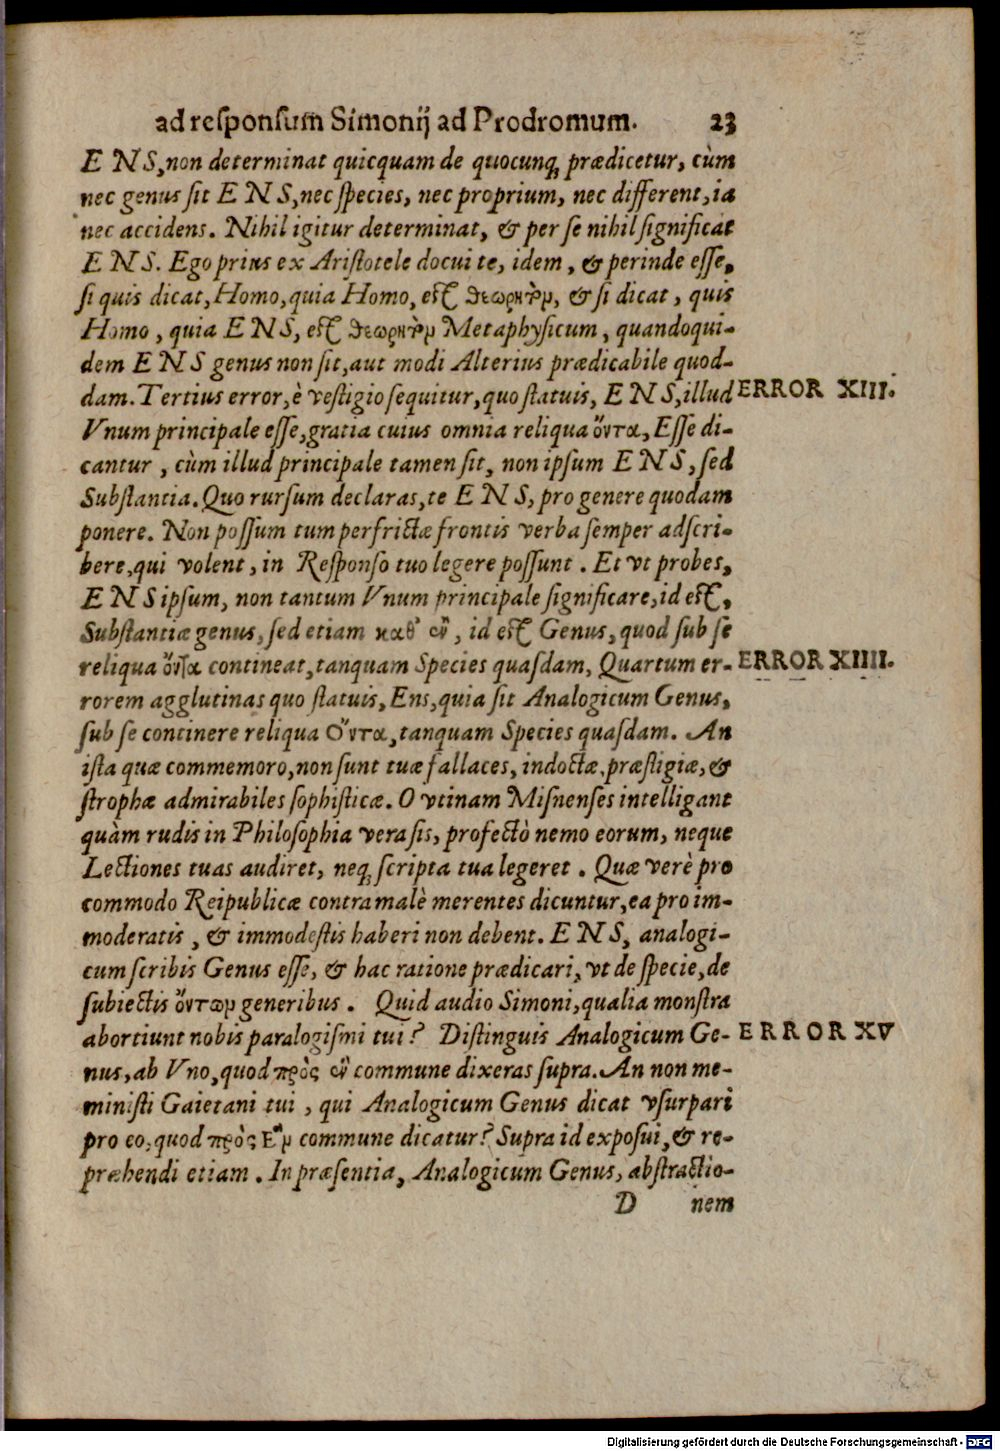 ad responsum Simonij ad Prodromum. 23
E N S, non determinat quicquam de quocunq; prædicetur, cùm
nec genus sit E N S, nec species, nec proprium, nec different, ia
nec accidens. Nihil igitur determinat, & per se nihil significat
E N S. Ego prius ex Aristotele docui te, idem, & perinde esse,
si quis dicat, Homo, quia Homo, est θεωρητὸν, & si dicat, quis
Homo, quia E N S, est θεωρητὸν Metaphysicum, quandoqui-
dem E N S genus non sit, aut modi Alterius prædicabile quod-
dam. Tertius error, è vestigio sequitur, quo statuis, E N S, illud ERROR XIII.
Vnum principale esse, gratia cuius omnia reliqua ὄντα, Esse di-
cantur, cùm illud principale tamen sit, non ipsum E N S, sed
Substantia. Quo rursum declaras, te E N S, pro genere quodam
ponere. Non possum tum perfrictæ frontis verba semper adscri-
bere, qui volent, in Responso tuo legere possunt. Et vt probes,
E N S ipsum, non tantum Vnum principale significare, id est,
Substantiæ genus, sed etiam καθ' ἓν, id est Genus, quod sub se
reliqua ὄντα contineat, tanquam Species quasdam, Quartum er- ERROR XIIII.
rorem agglutinas quo statuis, Ens, quia sit Analogicum Genus,
sub se continere reliqua Ὄντα, tanquam Species quasdam. An
ista quæ commemoro, non sunt tuæ fallaces, indoctæ, præstigiæ, &
strophæ admirabiles sophisticæ. O vtinam Misnenses intelligant
quàm rudis in Philosophia vera sis, profectò nemo eorum, neque
Lectiones tuas audiret, neq; scripta tua legeret. Quæ verè pro
commodo Reipublicæ contra malè merentes dicuntur, ea pro im-
moderatis, & immodestis haberi non debent. E N S, analogi-
cum scribis Genus esse, & hac ratione prædicari, vt de specie, de
subiectis ὄντων generibus. Quid audio Simoni, qualia monstra
abortiunt nobis paralogismi tui? Distinguis Analogicum Ge- ERROR XV
nus, ab Vno, quod πρὸς ἓν commune dixeras supra. An non me-
ministi Gaietani tui, qui Analogicum Genus dicat vsurpari
pro eo, quod πρὸς Ἓν commune dicatur? Supra id exposui, & re-
præhendi etiam. In præsentia, Analogicum Genus, abstractio-
D nem
Digitalisierung gefördert durch die Deutsche Forschungsgemeinschaft - DFG